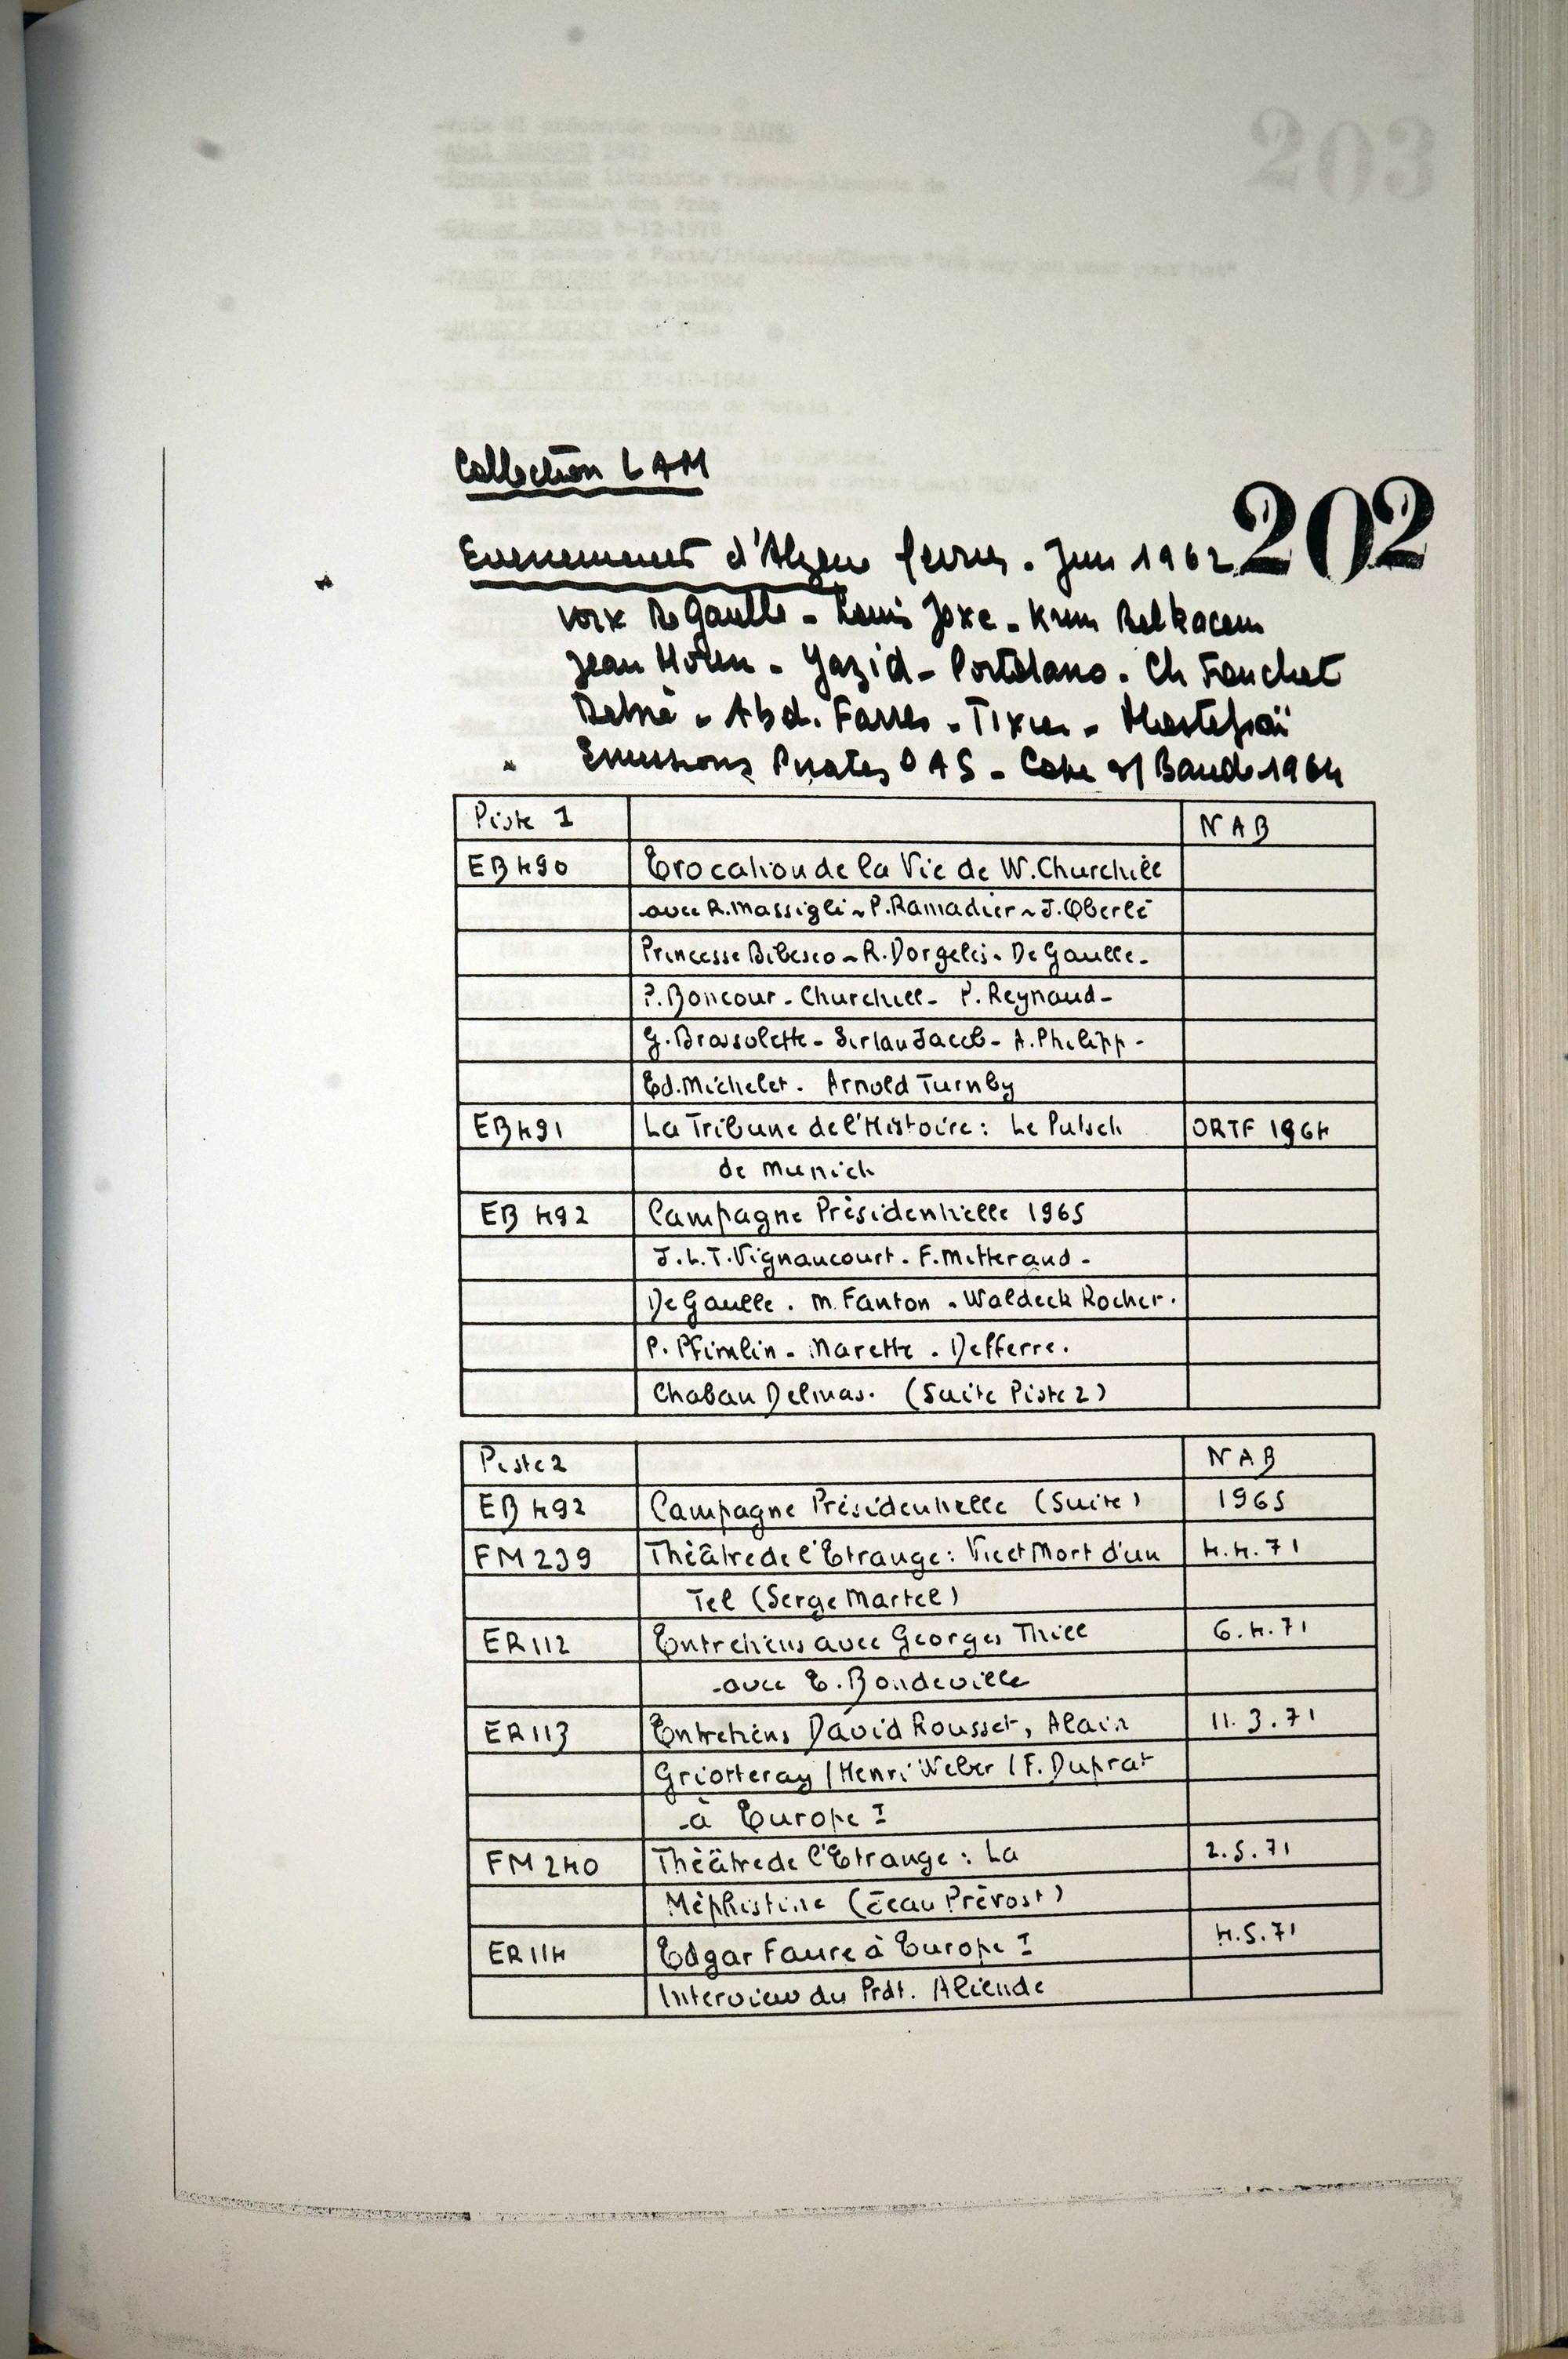 Collection LAM
202
Evenements d'Algerie fevrier - Juin 1962
voix De Gaulle - Louis Joxe - Krim Belkacem
Jean Morin - Yazid - Portolano - Ch Fouchet
Debré - Abd. Farres - Tixier - Mostefaï
Emissions Pirates OAS - Baud 1964
Piste 1 NAB
EB 490 Evocation de la Vie de W. Churchill
avec R. Massigli - P. Ramadier - J. Oberlé
Princesse Bibesco - R. Dorgelès - De Gaulle -
P. Boncour - Churchill - P. Reynaud -
G. Brossolette - Sir Ian Jacob - A. Philipp -
Ed. Michelet - Arnold Turnby
EB 491 La Tribune de l'Histoire : Le Putsch ORTF 1964
de Munich
EB 492 Campagne Présidentielle 1965
J.L.T. Vignancourt - F. Mitterand -
De Gaulle - M. Fanton - Waldeck Rocher -
P. Pfimlin - Marette - Defferre.
Chaban Delmas. (Suite Piste 2)
Piste 2 NAB
EB 492 Campagne Présidentielle (Suite) 1965
FM 239 Théâtre de l'Etrange : Vie et Mort d'un 4.4.71
Tel (Serge Martel)
ER 112 Entretiens avec Georges Thill 6.4.71
avec E. Bondeville
ER 113 Entretiens David Rousset, Alain 11.3.71
Griotteray / Henri Weber / F. Duprat
à Europe I
FM 240 Théâtre de l'Etrange : La 2.5.71
Méphistine (Jean Prévost)
ER 114 Edgar Faure à Europe I 4.5.71
Interview du Prdt. Aliende